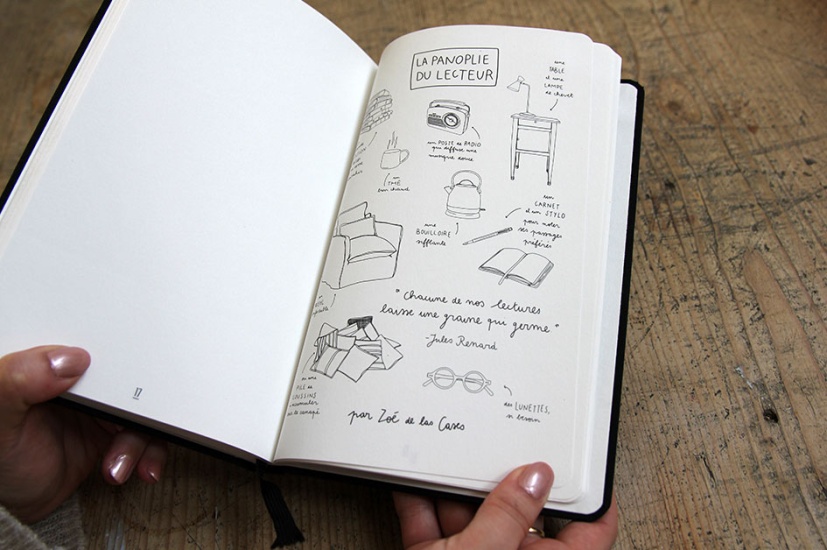 LA PANOPLIE
DU LECTEUR
une
TABLE
et une
LAMPE
de chevet
un POSTE de RADIO
qui diffuse une
musique douce
un
THÉ
bien chaud
une
BOUILLOIRE
sifflante
un
CARNET
et un STYLO
pour noter
ses passages
préférés
"Chacune de nos lectures
laisse une graine qui germe"
-Jules Renard
ou une
PILE de
COUSSINS
sur le canapé
des LUNETTES,
si besoin
par Zoé de las Cases
17